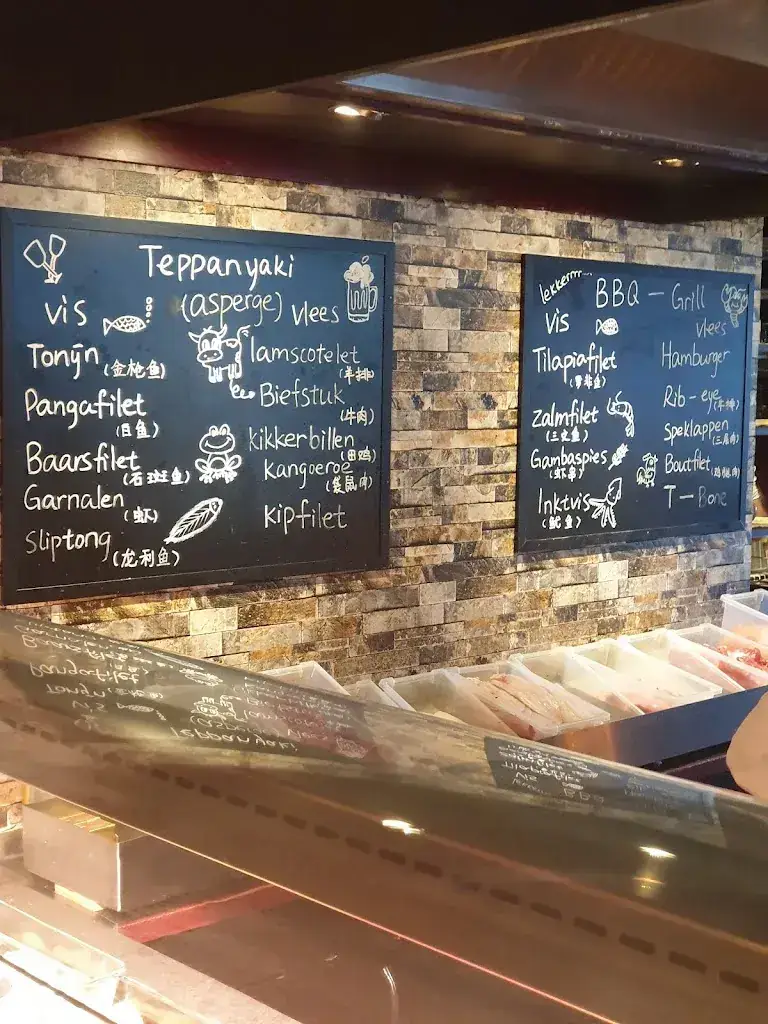 Teppanyaki
(asperge)
vis
Tonijn (金枪鱼)
Pangafilet
(白鱼)
Baarsfilet
(石斑鱼)
Garnalen
(虾)
Sliptong
(龙利鱼)
vlees
lamscotelet
(羊排)
Biefstuk
(牛肉)
kikkerbillen
(田鸡)
kangoeroe
(袋鼠肉)
kipfilet
lekkerrrr...
BBQ - Grill
vis
Tilapiafilet
zalmfilet
(三文鱼)
Gambaspies
(虾串)
Inktvis
(鱿鱼)
vlees
Hamburger
Rib-eye
(牛排)
Speklappen
Boutfilet
T-Bone